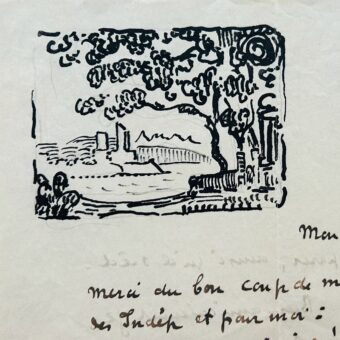 Mon
Merci du bon coup de m
des Indép et pour moi :